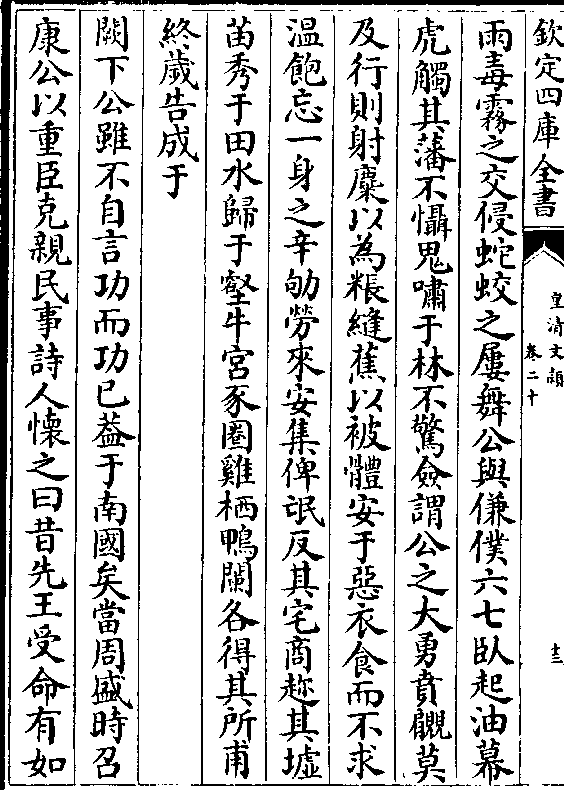 欽定四庫全書
皇清文穎
卷二十
十三
雨毒霧之交侵蛇蛟之屢舞公與傔僕六七臥起油幕
虎觸其藩不懾鬼嘯于林不驚僉謂公之大勇賁覵莫
及行則射麋以為粻縫蕉以被體安于惡衣食而不求
温飽忘一身之辛劬勞來安集俾氓反其宅商趂其墟
苗秀于田水歸于壑牛宮豕圈雞栖鴨闌各得其所甫
終歲告成于
闕下公雖不自言功而功已葢于南國矣當周盛時召
康公以重臣克親民事詩人懷之曰昔先王受命有如